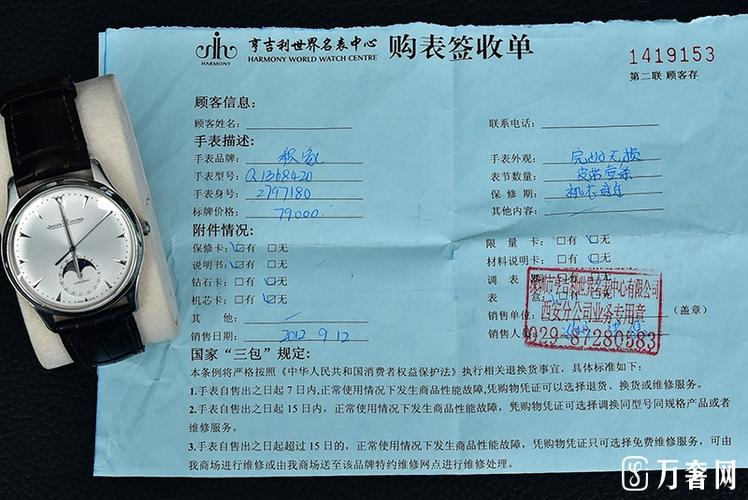 亨吉利世界名表中心 购表签收单
HARMONY HARMONY WORLD WATCH CENTRE
1419153
第二联 顾客存
顾客信息:
顾客姓名: 联系电话:
手表描述:
手表品牌: 积家 手表外观: 完好无损
手表型号: Q1368420 表节数量: 皮带壹条
手表身号: 2797180 保修期:
标牌价格: 79000 其他内容:
附件情况:
保修卡: 有 无 限量卡: 有 无
说明书: 有 无 材料说明卡: 有 无
钻石卡: 有 无 调表
机芯卡: 有 无 表
其他: 销售单位: (盖章)
销售日期: 2012 9 12 销售人
深圳市亨吉利世界名表中心有限公司
西安分公司业务专用章
029-87280583
国家“三包”规定:
本条例将严格按照《中华人民共和国消费者权益保护法》执行相关退换货事宜,具体标准如下:
1.手表自售出之日起7日内,正常使用情况下发生商品性能故障,凭购物凭证可以选择退货、换货或维修服务。
2.手表自售出之日起15日内,正常使用情况下发生商品性能故障,凭购物凭证可选择调换同型号同规格产品或者
维修服务。
3.手表自售出之日起超过15日的,正常使用情况下发生商品性能故障,凭购物凭证只可选择免费维修服务,可由
我商场进行维修或由我商场送至该品牌特约维修网点进行维修处理。
万奢网